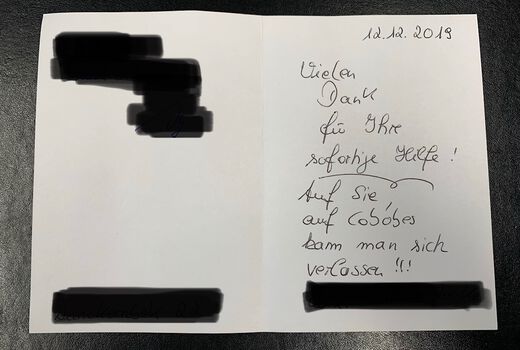 12.12.2019
Vielen
Dank
für Ihre
sofortige Hilfe!
Auf Sie
auf Cobóbes
kann man sich
verlassen!!!